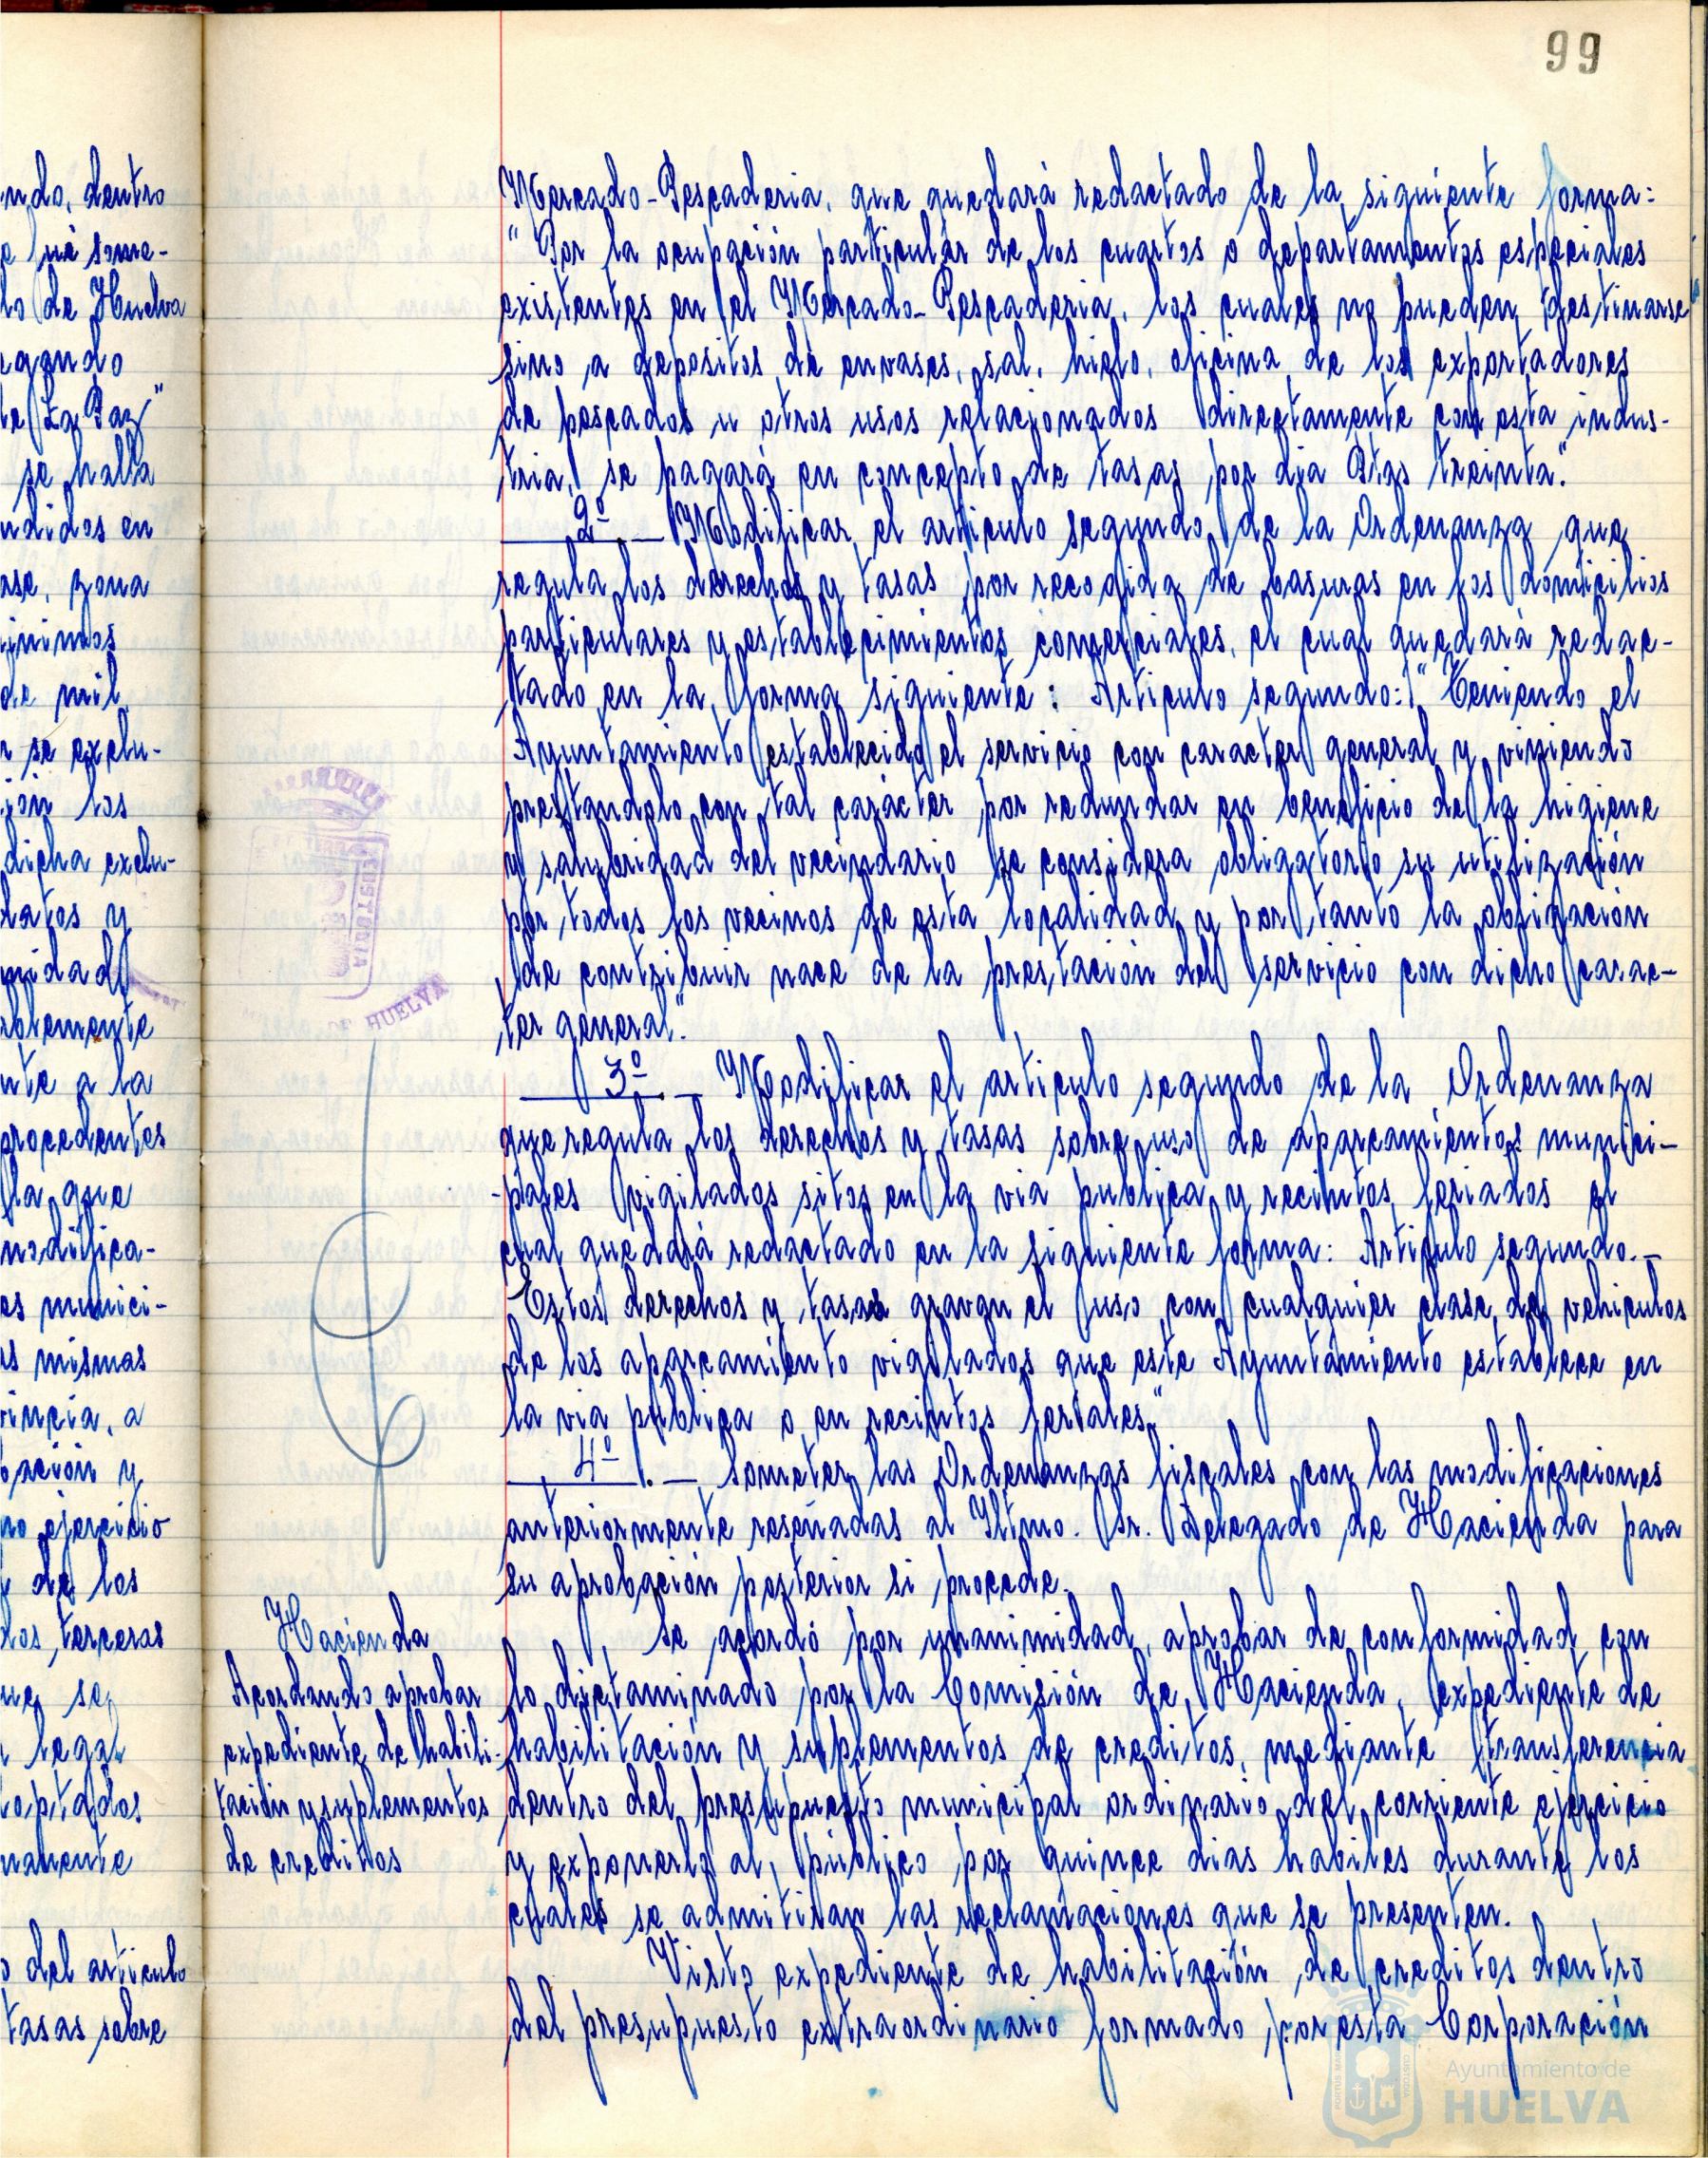 99
ndo, dentro
e fué some-
lo de Huelva
gando
te "La Paz"
se halla
ndidos en
ase, zona
mínimos
de mil
r se exclu-
ión los
dicha exclu-
datos y
midad
ablemente
nte a la
procedentes
la que
modifica-
es munici-
as mismas
vincia, a
bación y
mo ejercicio
y de los
dos, terceras
ue se
n legal
optados
mamente
o del articulo
tasas sobre
Mercado-Pescaderia, que quedará redactado de la siguiente forma:
"Por la ocupación particular de los cuartos o departamentos especiales
existentes en el Mercado-Pescaderia, los cuales no pueden destinarse
sino a depositos de envases, sal, hielo, oficina de los exportadores
de pescados u otros usos relacionados directamente con esta indus-
tria, se pagará en concepto de tasas por dia Ptas treinta."
2º.— Modificar el articulo segundo de la Ordenanza que
regula los derechos y tasas por recogida de basuras en los domicilios
particulares y establecimientos comerciales, el cual quedará redac-
tado en la forma siguiente: Articulo segundo: "Teniendo el
Ayuntamiento establecido el servicio con caracter general y viniendo
prestandolo con tal carácter por redundar en beneficio de la higiene
y salubridad del vecindario se considera obligatorio su utilización
por todos los vecinos de esta localidad y por tanto la obligación
de contribuir nace de la prestación del servicio con dicho carac-
ter general."
3º.— Modificar el articulo segundo de la Ordenanza
que regula los derechos y tasas sobre uso de aparcamientos munici-
-pales vigilados sitos en la via publica y recintos feriados el
cual quedará redactado en la siguiente forma: Articulo segundo.—
"Estos derechos y tasas gravan el uso con cualquier clase de vehiculos
de los aparcamiento vigilados que este Ayuntamiento establece en
la via publica o en recintos feriales."
4º.— Someter las Ordenanzas fiscales con las modificaciones
anteriormente reseñadas al Iltmo. Sr. Delegado de Hacienda para
su aprobación posterior si procede.
Hacienda
Acordando aprobar
expediente de habili-
tación y suplementos
de creditos
Se acordó por unanimidad, aprobar de conformidad con
lo dictaminado por la Comisión de Hacienda, expediente de
habilitación y suplementos de creditos, mediante transferencia
dentro del presupuesto municipal ordinario del corriente ejercicio
y exponerlo al público por quince dias habiles durante los
cuales se admitiran las reclamaciones que se presenten.
Visto expediente de habilitación de creditos dentro
del presupuesto extraordinario formado por esta Corporación
HUELVA
Ayuntamiento de
HUELVA